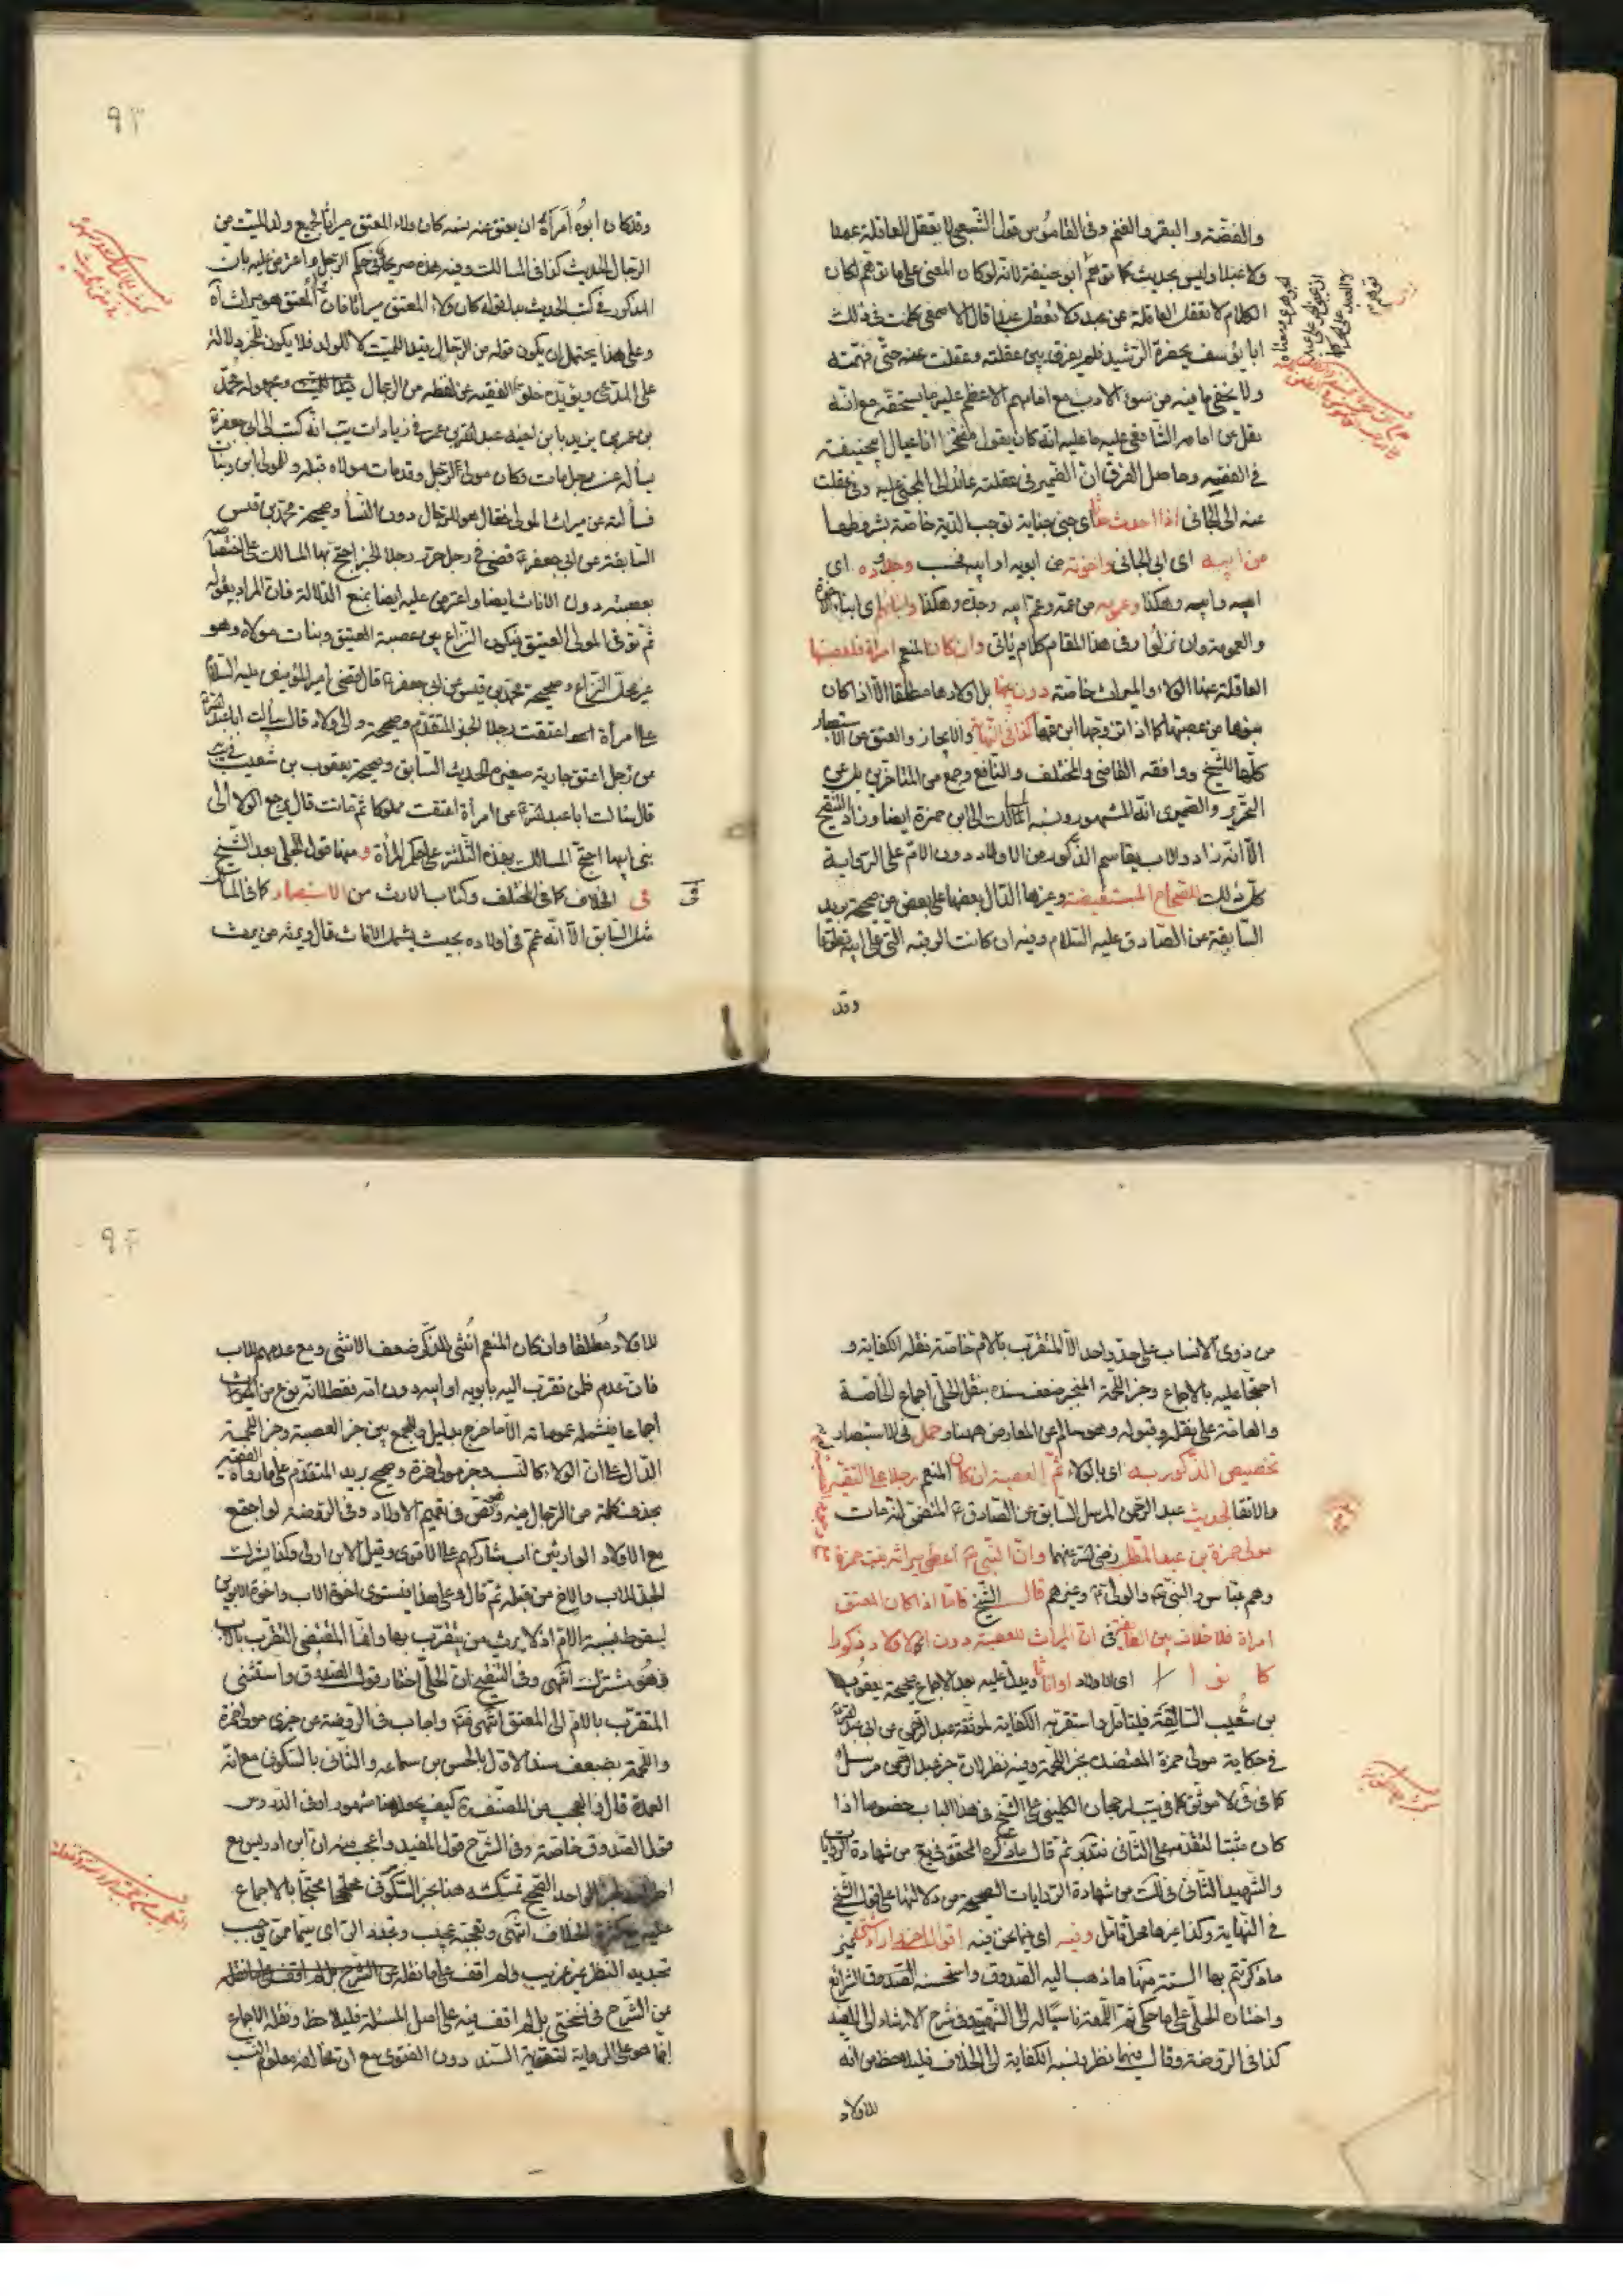 والفضة والبقر والغنم وفى القاموس قول الشعبى لا يعقل العاقلة عمدا
ولا عبدا وليس بحديث كما توهم ابو حنيفة لانه لو كان المعنى على ما توهم لكان
الكلام لا تعقل العاقلة عن عبد ولا تعقل عبدا قال الاصمعى كلمت فى ذلك
ابا يوسف بحضرة الرشيد فلم يفرق بين عقلته وعقلت عنه حتى فهمته
ولا يخفى ما فيه من سوء الادب مع امامهم الاعظم عليه ما يستحقه مع انه
نقل عن امامه الشافعى عليه ما عليه انه كان يقول مفتخرا انا عيال ابيحنيفة
فى الفقه وحاصل الفرق ان الضمير فى عقلته عائد الى المجنى عليه وفى عقلت
عنه الى الجانى اذا احدث حدثا اى جنى جناية توجب الدية خاصة بشروطها
من ابيه اى ابى الجانى واخوته من ابويه او ابيه فحسب وجدوده اى
ابيه وابيه وهكذا وعمومته من عمه وعم ابيه وجده وهكذا وابنائهم اى ابناء الاخوة
والعمومة وان نزلوا وفى هذا المقام كلام يأتى وان كان المنعم امرأة فلعصبتها
العاقلة عنها الولاء والميراث خاصة دون بنيها بل اولادها مطلقا الا اذا كان
بنوها من عصبتها كما اذا تزوجها ابن عمها كما فى النهاية والايجاز والعتق من الاستبصار
كلها للشيخ ووافقه القاضى والمختلف والنافع وجمع من المتاخرين بل عن
التحرير والصيمرى انه المشهور ونسبه المسالك الى ابن حمزة ايضا وزاد التنقيح
الا انه زاد والاب يقاسم الذكور من الاولاد دون الام على الرواية
كل ذلك للصحاح المستفيضة وغيرها الدال بعضها على بعض من صحيحة بريد
السابقة عن الصادق عليه السلام وفيه ان كانت الرقبة التى على ابيه تطوعا
وقد
وقد كان ابوه امرأة ان يعتق عنه نسمة كان ولاء المعتق ميراثا لجميع ولد الميت من
الرجال الحديث كذا فى المسالك وفيه هذه صريحة فى حكم الرجل واعترض عليه بان
المذكور فى كتب الحديث بعد قوله كان ولاء المعتق ميراثا فان المعتق هو ميراث آه
وعلى هذا يحتمل ان يكون قوله من الرجال قيدا للميت لا للولد فلا يكون للخبر دلالة
على المدعى ويؤيده خلو الفقيه عن لفظه من الرجال
بن عمر بن يزيد يا بن لعبد الله بن عمر فى زيادات يب انه كتب الى ابى جعفر ع
يسأله عن رجل مات وكان مولى لرجل وقد مات مولاه قبله وللمولى ابن وبنات
فسألته عن ميراث المولى فقال هو للرجال دون النساء وصحيحة محمد بن قيس
السابقة عن ابى جعفر ع قضى فى رجل حرر رجلا الخبر احتج بها المسالك على اختصاصه
بعصبته دون الاناث ايضا واعترض عليه ايضا بمنع الدلالة فان المراد بقوله
ثم توفى المولى العتيق فيكون النزاع بين عصبة العتيق وبنات مولاه وهو
غير محل النزاع وصحيحة محمد بن قيس عن ابى جعفر ع قال قضى امير المؤمنين عليه السلام
على امرأة اعتقت رجلا الخبر المتقدم وصحيحة ولاد قال سألت ابا عبد الله ع
عن رجل اعتق جارية صغيرة الحديث السابق وصحيحة يعقوب بن شعيب
قال سالت ابا عبد الله ع عن امرأة اعتقت مملوكا ثم ماتت قال يرجع الولاء الى
بنى ابيها احتج المسالك بهذه الثلثة على حكم المرأة ومنها قول الحلى بعد الشيخ
فى الخلاف كما فى المختلف وكتاب الارث من الاستبصار كما فى المسالك
مثل السابق الا انه عم فى اولاده بحيث يشمل الاناث قال ويرثه من يرث
من ذوى الانساب على حد واحد الا المتقرب بالام خاصة نقله الكفاية و
احتجا عليه بالاجماع وخبر اللحمة المنجبر ضعف سنده بنقل الحلى اجماع الخاصة
والعامة على نقله وقبوله وهو سالم عن المعارض ههنا وحمل فى الاستبصار
تخصيص الذكور به اى بالولاء ثم العصبة ان كان المنعم رجلا على التقية
والاتقا لحديث عبد الرحمن المرسل السابق عن الصادق ع المتضمن انه مات
مولى حمزة بن عبد المطلب رضى الله عنهما وان النبى ص اعطى ميراثه بنت حمزة
وهم عباس والنبى ص والولى ع وغيرهم قال الشيخ فاما اذا كان المعتق
امراة فلا خلاف بين الطائفة فى ان الميراث للعصبة دون الاولاد ذكورا
كانوا اى الاولاد او اناثا ويدل عليه بعد الاجماع صحيحة يعقوب
بن شعيب السالفة فليتامل واستقر به الكفاية لموثقة عبد الرحمن عن ابى عبد الله ع
فى حكاية مولى حمزة المعتضد بخبر اللحمة وفيه نظر لان خبر عبد الرحمن مرسل
كما فى فى لا موثق كما فى يب لرجحان الكلينى على الشيخ فى هذا الباب خصوصا اذا
كان مثبتا لتقدمه على الثانى فتدبر ثم قال ما ذكره المحقق فى يع من شهادة الروايات
والشهيد الثانى فى لك من شهادة الروايات الصحيحة من دلالتها على قول الشيخ
فى النهاية وكذا غيرها محل تأمل وفيه اى فيما نحن فيه اقوال
ما ذكرت تم بها الستة منها ما ذهب اليه الصدوق واستحسنه الصدوق الشرائع
واختاره الحلى على ما حكى ثم اللمعة ناسبا له الى الشهرة وفى شرح الارشاد الى المفيد
كذا فى الروضة وقال فيهما نظر بنسبه الكفاية الى الخلاف فليلاحظ من انه
للاولاد
للاولاد مطلقا وان كان المنعم انثى للذكر ضعف الانثى ومع عدمهم للاب
فان عدم فلمن تقرب اليه بابويه او ابيه دون امه فقط لانه نوع من الميراث
اجماعا فيشمله عموماته الا ما خرج بدليل وللجمع بين خبر العصبة وخبر اللحمة
الدال على ان الولاء كالنسب وخبر مولى حمزة وصحيح بريد المتقدم على ما رواه الفقيه
بحذف كلمة من الرجال فيه ونص فى تعميم الاولاد وفى الروضة لو اجتمع
مع الاولاد الوارثين اب شاركهم على الاقوى وقيل الابن اولى وكذا يشترك
الجد للاب والاخ من قبله ثم قال وعلى هذا فيستوى اخوة الاب واخوة الابوين
لسقوط نسبة الام اذ لا يرث من يتقرب بها وانما المقتضى التقرب بالاب
فهو مشترك انتهى وفى التنقيح ان الحلى اختار قول الصدوق واستثنى
المتقرب بالام الى المعتق انتهى فتدبر واجاب فى الروضة عن خبرى مولى حمزة
واللحمة بضعف سند الاول بالحسن بن سماعه والثانى بالسكونى مع انه
العمدة قال والعجب من المصنف ره كيف يجعله هنا مشهورا وفى الدروس
قول الصدوق خاصة وفى الشرح قول المفيد واعجب منه ان ابن ادريس مع
الواحد الصحيح تمسك هنا بخبر السكونى محتجا بالاجماع
عليه مع كثرة الخلاف انتهى وتعجبه عجيب
تجديد النظر غير غريب ولم اقف على ما نقله
من الشرح فى نسختى بل لم اقف فيه على اصل المسئلة فليلاحظ ونقله الاجماع
انما هو على الرواية لتقوية السند دون الفتوى مع ان مخالفه معلوم النسب